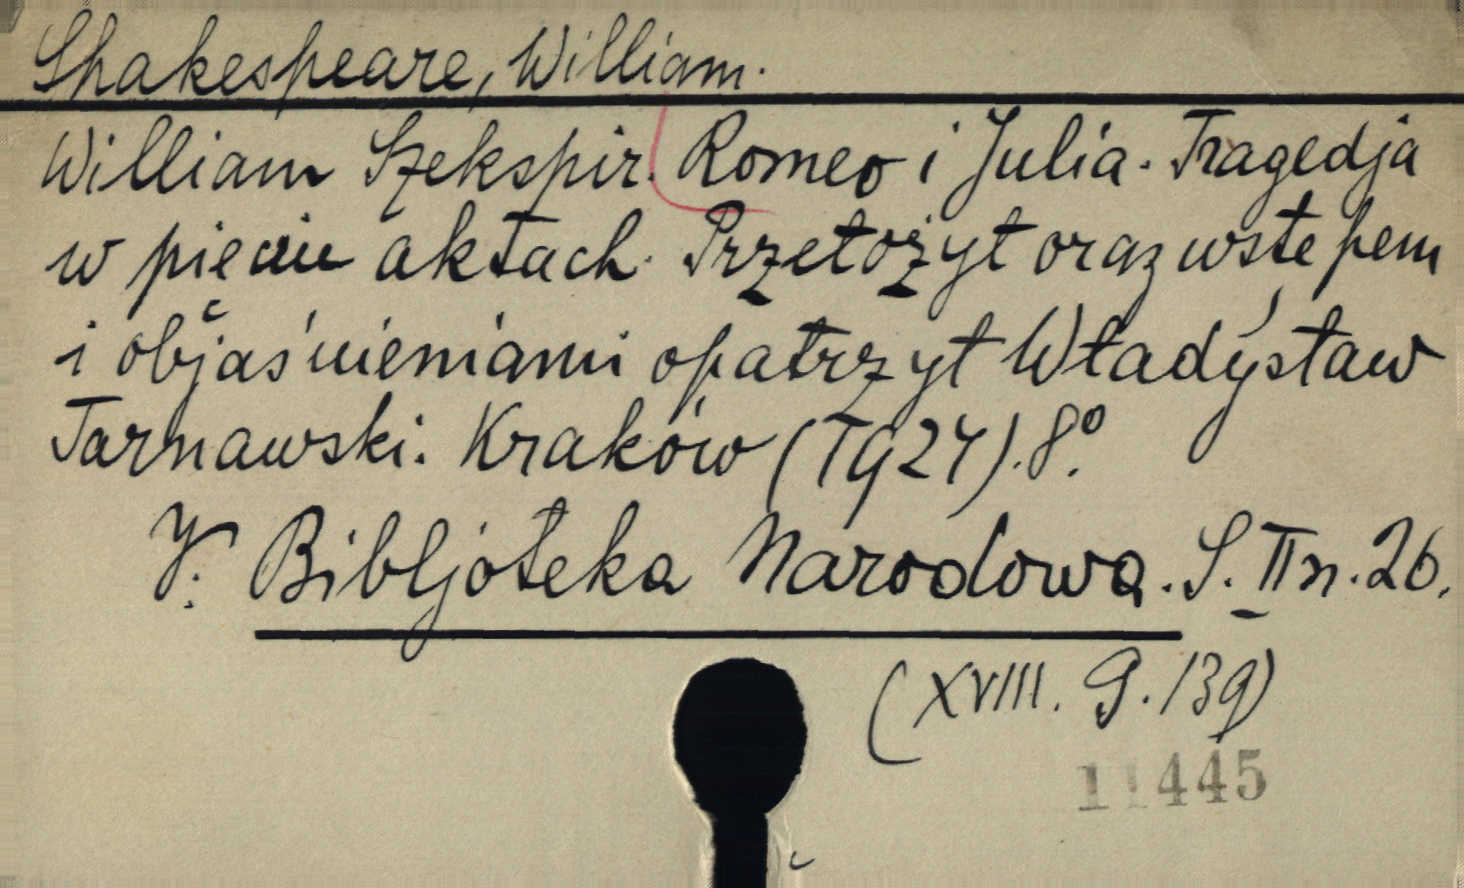 Shakespeare, William.
William Szekspir. Romeo i Julia. Tragedja
w pięciu aktach. Przełożył oraz wstępem
i objaśnieniami opatrzył Władysław
Tarnawski. Kraków (1924). 8°.
V. Bibljoteka Narodowa. S. II n. 26.
(XVIII. G. 139)
11445